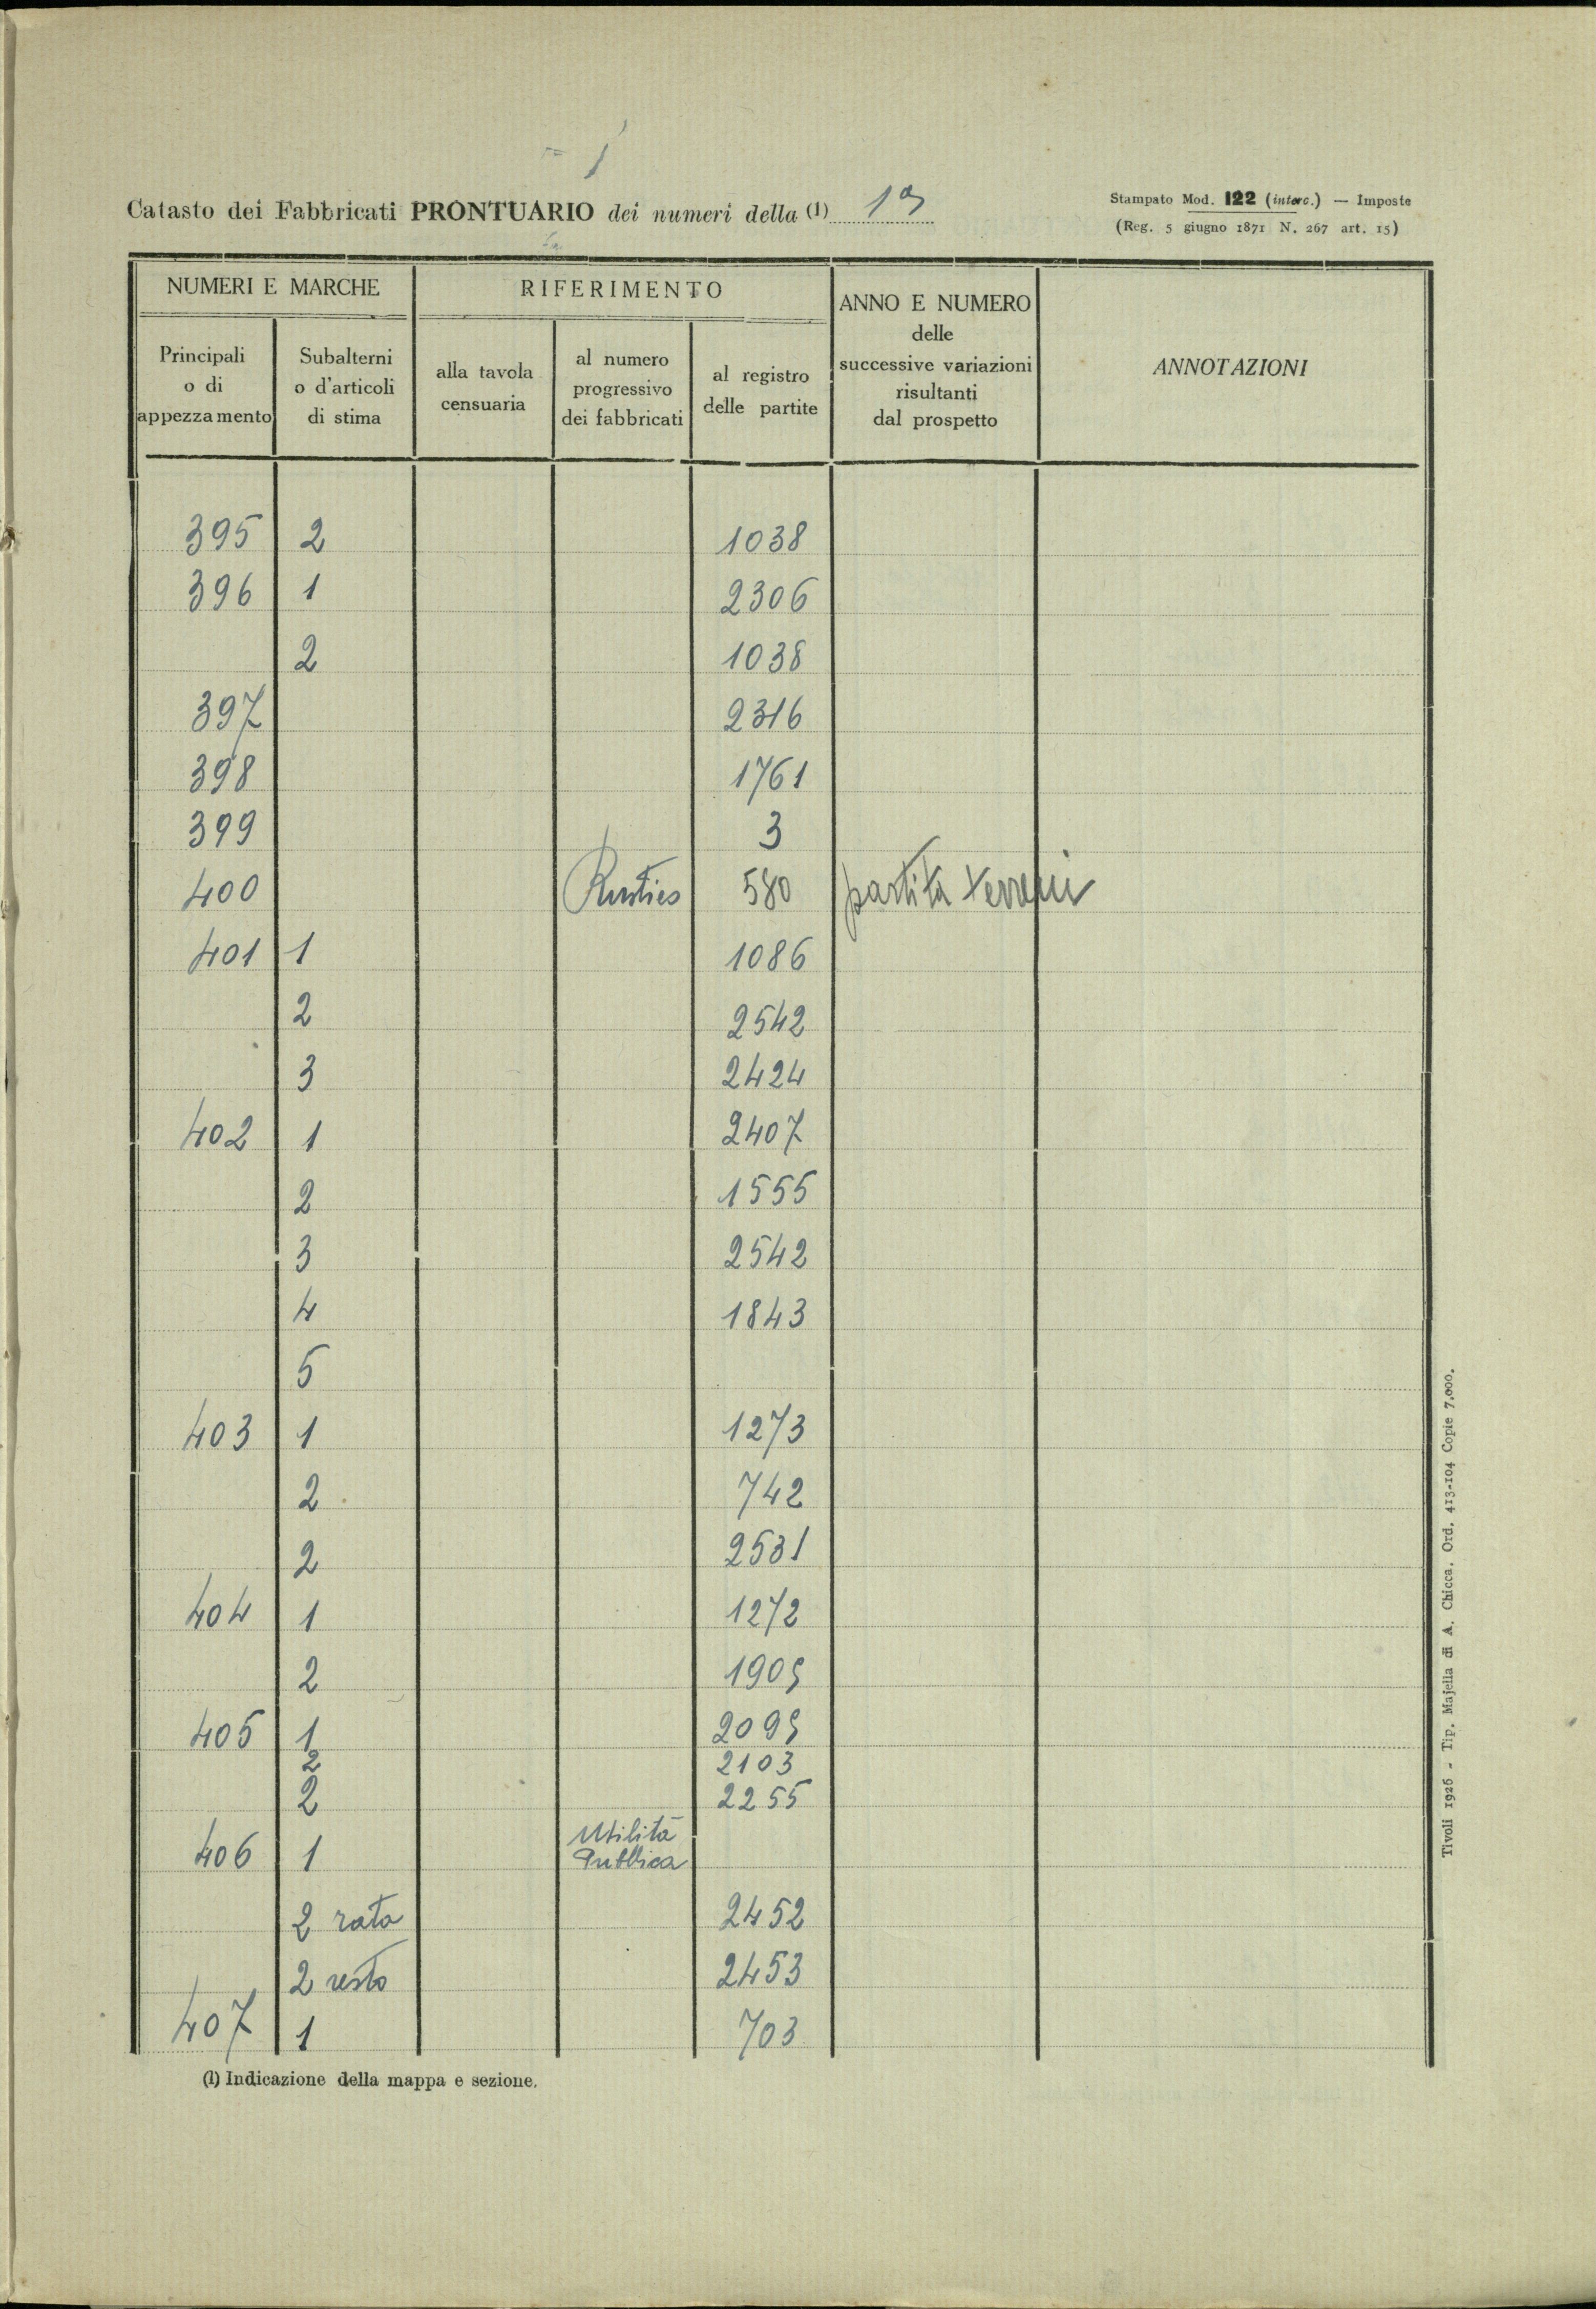 1
Catasto dei Fabbricati PRONTUARIO dei numeri della (1) 1ª
Stampato Mod. 122 (interc.) — Imposte
(Reg. 5 giugno 1871 N. 267 art. 15)
NUMERI E MARCHE
RIFERIMENTO
ANNO E NUMERO
delle
successive variazioni
risultanti
dal prospetto
ANNOTAZIONI
Principali
o di
appezzamento
Subalterni
o d'articoli
di stima
alla tavola
censuaria
al numero
progressivo
dei fabbricati
al registro
delle partite
395 2 1038
396 1 2306
2 1038
397 2316
398 1761
399 3
400 Rustico 580 partita terreni
401 1 1086
2 2542
3 2424
402 1 2407
2 1555
3 2542
4 1843
5
403 1 1273
2 742
2 2531
404 1 1272
2 1905
405 1 2095
2 2103
2 2255
406 1 Utilità
Pubblica
2 rata 2452
2 resto 2453
407 1 703
(1) Indicazione della mappa e sezione.
Tivoli 1926 - Tip. Majella di A. Chicca. Ord. 413-104 Copie 7.000.